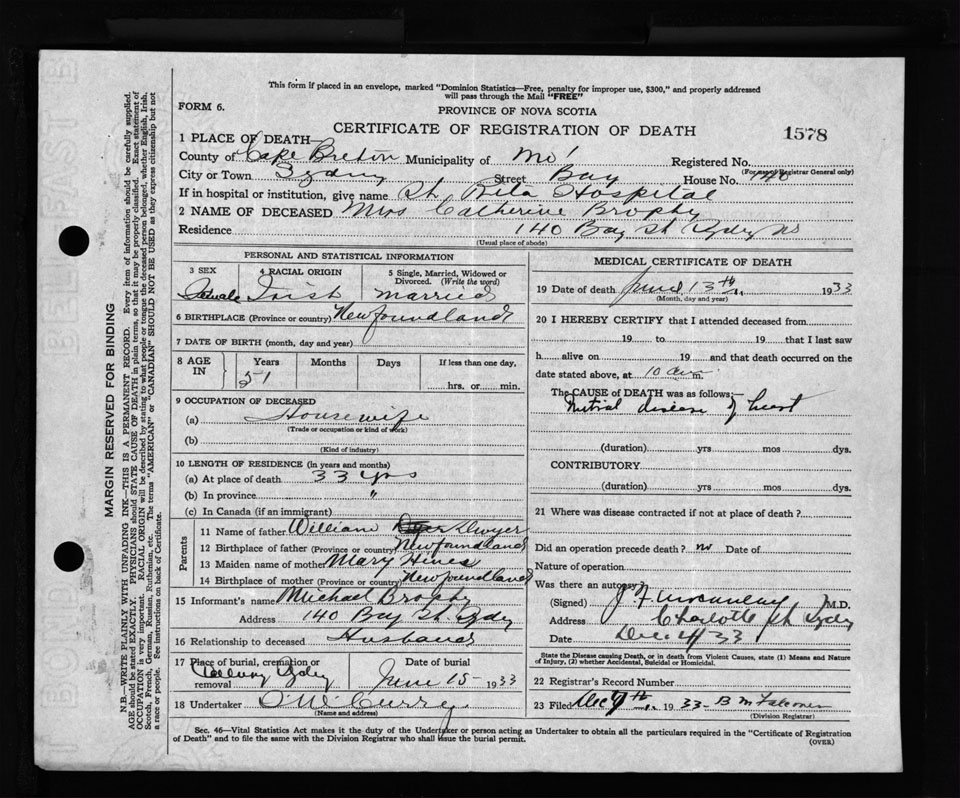 This form if placed in an envelope, marked "Dominion Statistics—Free, penalty for improper use, $300," and properly addressed
will pass through the Mail "FREE"
FORM 6.
PROVINCE OF NOVA SCOTIA
CERTIFICATE OF REGISTRATION OF DEATH
1578
1 PLACE OF DEATH—
County of Cape Breton Municipality of Registered No.
(For use of Registrar General only)
City or Town Sydney Street Bay House No. 140
If in hospital or institution, give name St. Rita Hospital
2 NAME OF DECEASED Mrs Catherine Brophy
Residence 140 Bay St Sydney NS
(Usual place of abode)
PERSONAL AND STATISTICAL INFORMATION
3 SEX 4 RACIAL ORIGIN 5 Single, Married, Widowed or
Divorced. (Write the word)
Female Irish married
6 BIRTHPLACE (Province or country) Newfoundland
7 DATE OF BIRTH (month, day and year)
8 AGE IN Years Months Days If less than one day,
51 hrs. or min.
9 OCCUPATION OF DECEASED
(a) Housewife
(Trade or occupation or kind of work)
(b)
(Kind of industry)
10 LENGTH OF RESIDENCE (in years and months)
(a) At place of death 33 yrs
(b) In province "
(c) In Canada (if an immigrant)
Parents
11 Name of father William Dwyer
12 Birthplace of father (Province or country) Newfoundland
13 Maiden name of mother Mary Hines
14 Birthplace of mother (Province or country) Newfoundland
15 Informant's name Michael Brophy
Address 140 Bay St Sydney
16 Relationship to deceased Husband
17 Place of burial, cremation or removal Date of burial
Sydney June 15 1933
18 Undertaker
(Name and address)
MEDICAL CERTIFICATE OF DEATH
19 Date of death June 13th 1933
(Month, day and year)
20 I HEREBY CERTIFY that I attended deceased from
19 to 19 that I last saw
h alive on 19 and that death occurred on the
date stated above, at 10 a m.
The CAUSE of DEATH was as follows:—
Mitral disease of heart
(duration) yrs mos dys.
CONTRIBUTORY
(duration) yrs mos dys.
21 Where was disease contracted if not at place of death?
Did an operation precede death? no Date of
Nature of operation
Was there an autopsy?
(Signed) M.D.
Address Charlotte St Sydney
Date Dec 4/33
State the Disease causing Death, or in death from Violent Causes, state (1) Means and Nature
of Injury, (2) whether Accidental, Suicidal or Homicidal.
22 Registrar's Record Number
23 Filed Dec 7th 1933
(Division Registrar)
Sec. 46—Vital Statistics Act makes it the duty of the Undertaker or person acting as Undertaker to obtain all the particulars required in the "Certificate of Registration
of Death" and to file the same with the Division Registrar who shall issue the burial permit. (OVER)
MARGIN RESERVED FOR BINDING
N.B.—WRITE PLAINLY WITH UNFADING INK—THIS IS A PERMANENT RECORD. Every item of information should be carefully supplied.
AGE should be stated EXACTLY. PHYSICIANS should STATE CAUSE OF DEATH in plain terms, so that it may be properly classified. Exact statement of
OCCUPATION is very important. RACIAL ORIGIN will be described by stating to what people or tongue the deceased person belonged, whether English, Irish,
Scotch, French, German, Russian, Ruthenian, etc. The terms "AMERICAN" or "CANADIAN" SHOULD NOT BE USED as they express citizenship but not
a race or people. See instructions on back of Certificate.